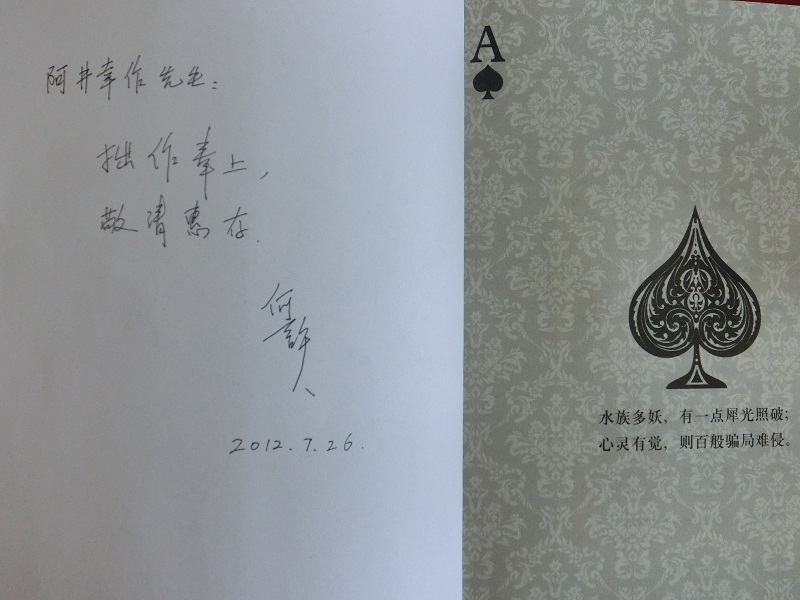 阿井幸作先生：
拙作奉上，
敬请惠存.
何許人
2012.7.26.
A
水族多妖，有一点犀光照破；
心灵有觉，则百般骗局难侵。